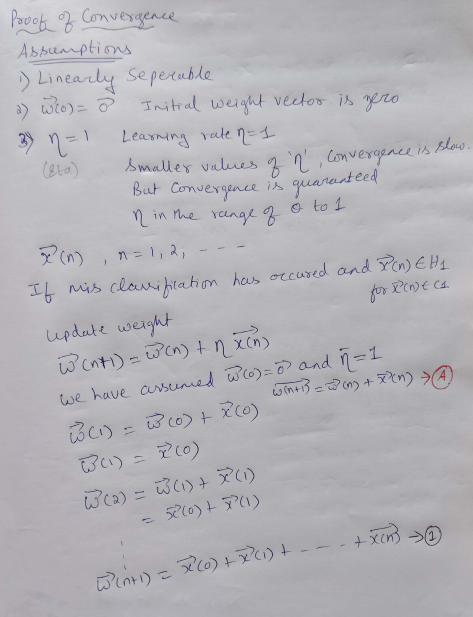 Proof of Convergence
Assumptions
1) Linearly Seperable
2) w⃗(0) = 0⃗ Initial weight vector is zero
3) η = 1 Learning rate η = 1
(eta) Smaller values of 'η', Convergence is slow.
But Convergence is guaranteed
η in the range of 0 to 1
x⃗(n), n = 1, 2, - - -
If mis classification has occured and x⃗(n) ∈ H1
for x⃗(n) ∈ C1
update weight
w⃗(n+1) = w⃗(n) + η x⃗(n)
we have assumed w⃗(0) = 0⃗ and η = 1
w⃗(n+1) = w⃗(n) + x⃗(n) → A
w⃗(1) = w⃗(0) + x⃗(0)
w⃗(1) = x⃗(0)
w⃗(2) = w⃗(1) + x⃗(1)
= x⃗(0) + x⃗(1)
w⃗(n+1) = x⃗(0) + x⃗(1) + - - - - + x⃗(n) → 1